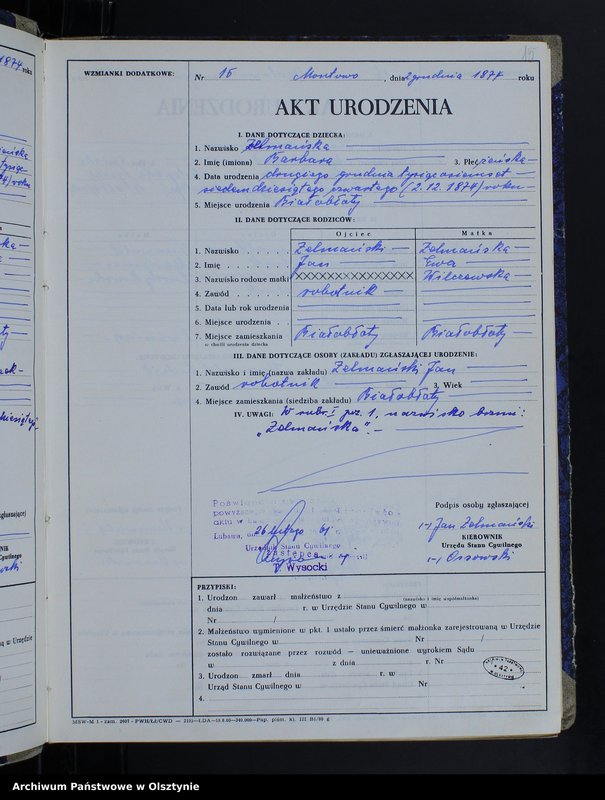 15
WZMIANKI DODATKOWE:
Nr 15 Montowo, dnia 2 grudnia 1874 roku
AKT URODZENIA
I. DANE DOTYCZĄCE DZIECKA:
1. Nazwisko Zelmańska
2. Imię (imiona) Barbara 3. Płeć żeńska —
4. Data urodzenia drugiego grudnia tysiąc osiemset —
siedemdziesiątego czwartego (2.12.1874) roku —
5. Miejsce urodzenia Białobłoty
II. DANE DOTYCZĄCE RODZICÓW:
Ojciec Matka
1. Nazwisko Zelmański — Zelmańska —
2. Imię Jan Ewa
3. Nazwisko rodowe matki XXXXXXXXXXXX Wilczewska
4. Zawód robotnik —
5. Data lub rok urodzenia
6. Miejsce urodzenia
7. Miejsce zamieszkania Białobłoty Białobłoty
w chwili urodzenia dziecka
III. DANE DOTYCZĄCE OSOBY (ZAKŁADU) ZGŁASZAJĄCEJ URODZENIE:
1. Nazwisko i imię (nazwa zakładu) Zelmański Jan
2. Zawód robotnik 3. Wiek
4. Miejsce zamieszkania (siedziba zakładu) Białobłoty
IV. UWAGI: W rubr. I poz. 1, nazwisko brzmi:
"Zelmańska". —
Lubawa, dn. 26 lutego 61 r.
Urzędnik Stanu Cywilnego
Zastępca
T. Wysocki
Podpis osoby zgłaszającej
/-/ Jan Zelmański
KIEROWNIK
Urzędu Stanu Cywilnego
/-/ Ossowski
PRZYPISKI:
1. Urodzon zawarł małżeństwo z
(nazwisko i imię współmałżonka)
dnia r. w Urzędzie Stanu Cywilnego w
Nr /
2. Małżeństwo wymienione w pkt. 1 ustało przez śmierć małżonka zarejestrowaną w Urzędzie
Stanu Cywilnego w Nr /
zostało rozwiązane przez rozwód — unieważnione wyrokiem Sądu
w z dnia r. Nr
3. Urodzon zmarł dnia r. w
Urząd Stanu Cywilnego w Nr
4.
42
Archiwum Państwowe w Olsztynie